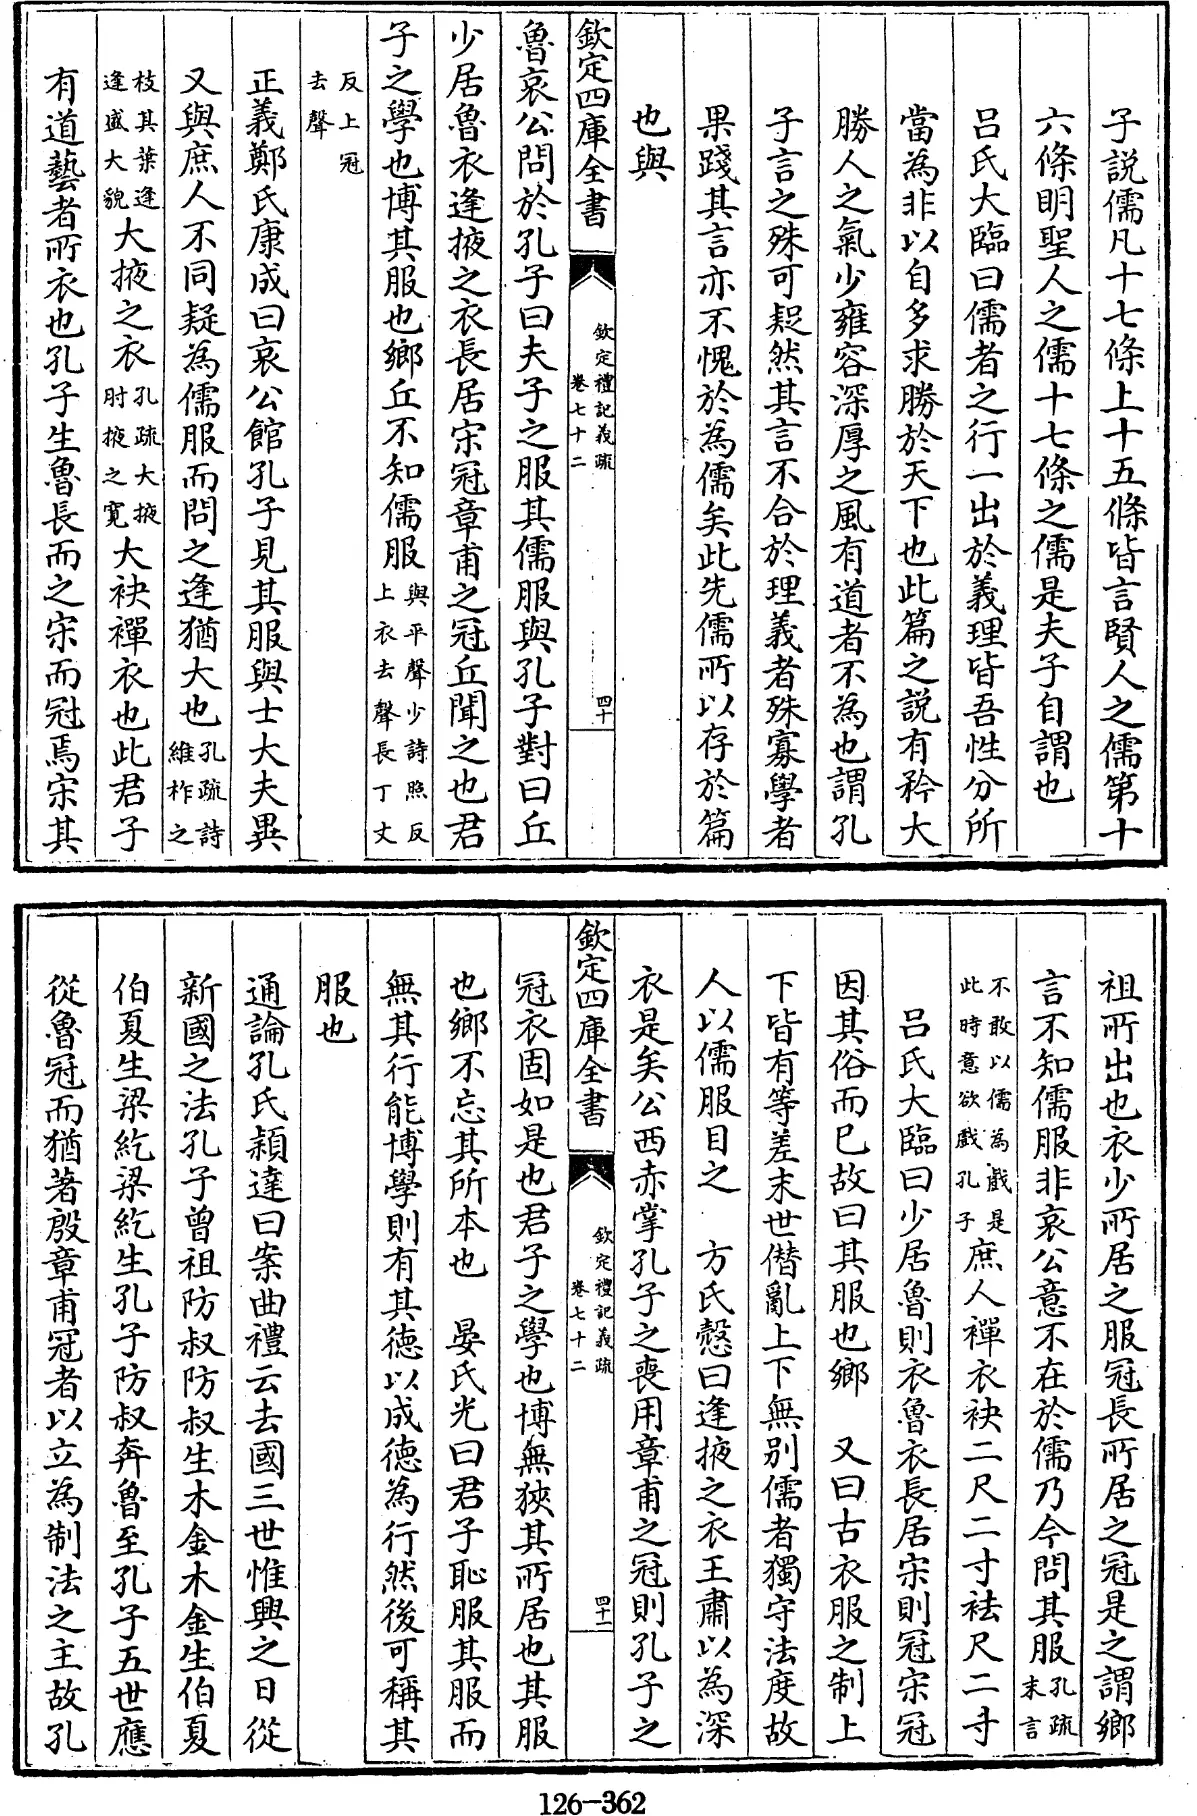 子説儒凡十七條上十五條皆言賢人之儒第十
六條明聖人之儒十七條之儒是夫子自謂也
吕氏大臨曰儒者之行一出於義理皆吾性分所
當為非以自多求勝於天下也此篇之説有矜大
勝人之氣少雍容深厚之風有道者不為也謂孔
子言之殊可疑然其言不合於理義者殊寡學者
果踐其言亦不愧於為儒矣此先儒所以存於篇
也與
欽定四庫全書
欽定禮記義疏
卷七十二
四十
魯哀公問於孔子曰夫子之服其儒服與孔子對曰丘
少居魯衣逢掖之衣長居宋冠章甫之冠丘聞之也君
子之學也博其服也鄉丘不知儒服與平聲少詩照反上衣去聲長丁丈
反上冠去聲
正義鄭氏康成曰哀公館孔子見其服與士大夫異
又與庶人不同疑為儒服而問之逢猶大也孔疏詩維柞之
枝其葉逢逢盛大貌大掖之衣孔疏大掖肘掖之寛大袂襌衣也此君子
有道藝者所衣也孔子生魯長而之宋而冠焉宋其
祖所出也衣少所居之服冠長所居之冠是之謂鄉
言不知儒服非哀公意不在於儒乃今問其服孔疏末言
不敢以儒為戲是此時意欲戲孔子庶人襌衣袂二尺二寸袪尺二寸
吕氏大臨曰少居魯則衣魯衣長居宋則冠宋冠
因其俗而已故曰其服也鄉　又曰古衣服之制上
下皆有等差末世僭亂上下無别儒者獨守法度故
人以儒服目之　方氏慤曰逢掖之衣王肅以為深
衣是矣公西赤掌孔子之喪用章甫之冠則孔子之
欽定四庫全書
欽定禮記義疏
卷七十二
四十一
冠衣固如是也君子之學也博無狹其所居也其服
也鄉不忘其所本也　晏氏光曰君子恥服其服而
無其行能博學則有其徳以成徳為行然後可稱其
服也
通論孔氏穎達曰案曲禮云去國三世惟興之日從
新國之法孔子曾祖防叔防叔生木金木金生伯夏
伯夏生梁紇梁紇生孔子防叔奔魯至孔子五世應
從魯冠而猶著殷章甫冠者以立為制法之主故孔
126-362